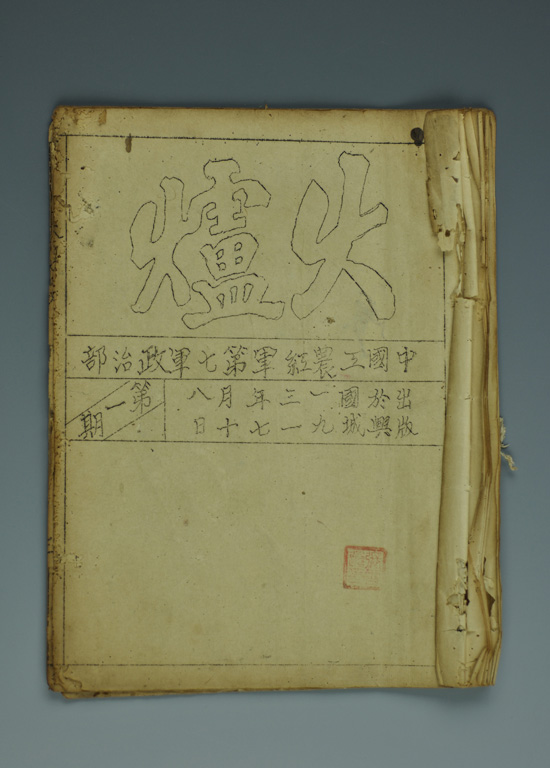 火爐
中國工農紅軍第七軍政治部
出版於興國城一九三一年七月十八日
第一期